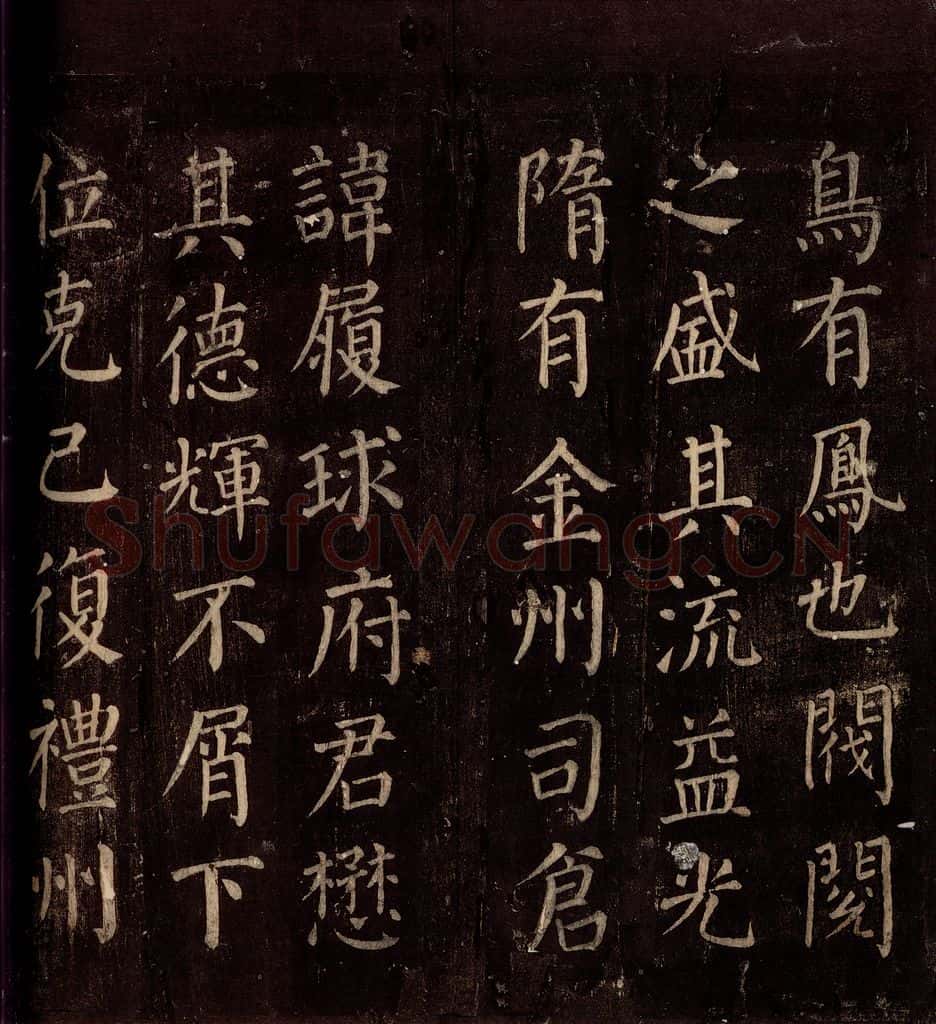 鳥有鳳也閥閱
之盛其流益光
隋有金州司倉
諱履球府君懋
其德輝不屑下
位克己復禮州
Shufawang.CN